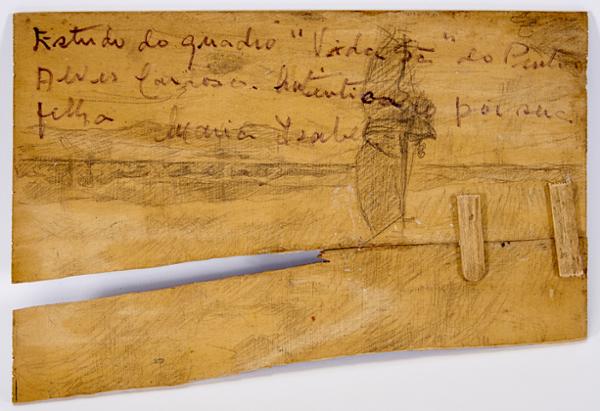 Estudo do quadro "Vida Sã" do Pintor
Alves Cardoso. Autentica do por sua
filha Maria Isabel